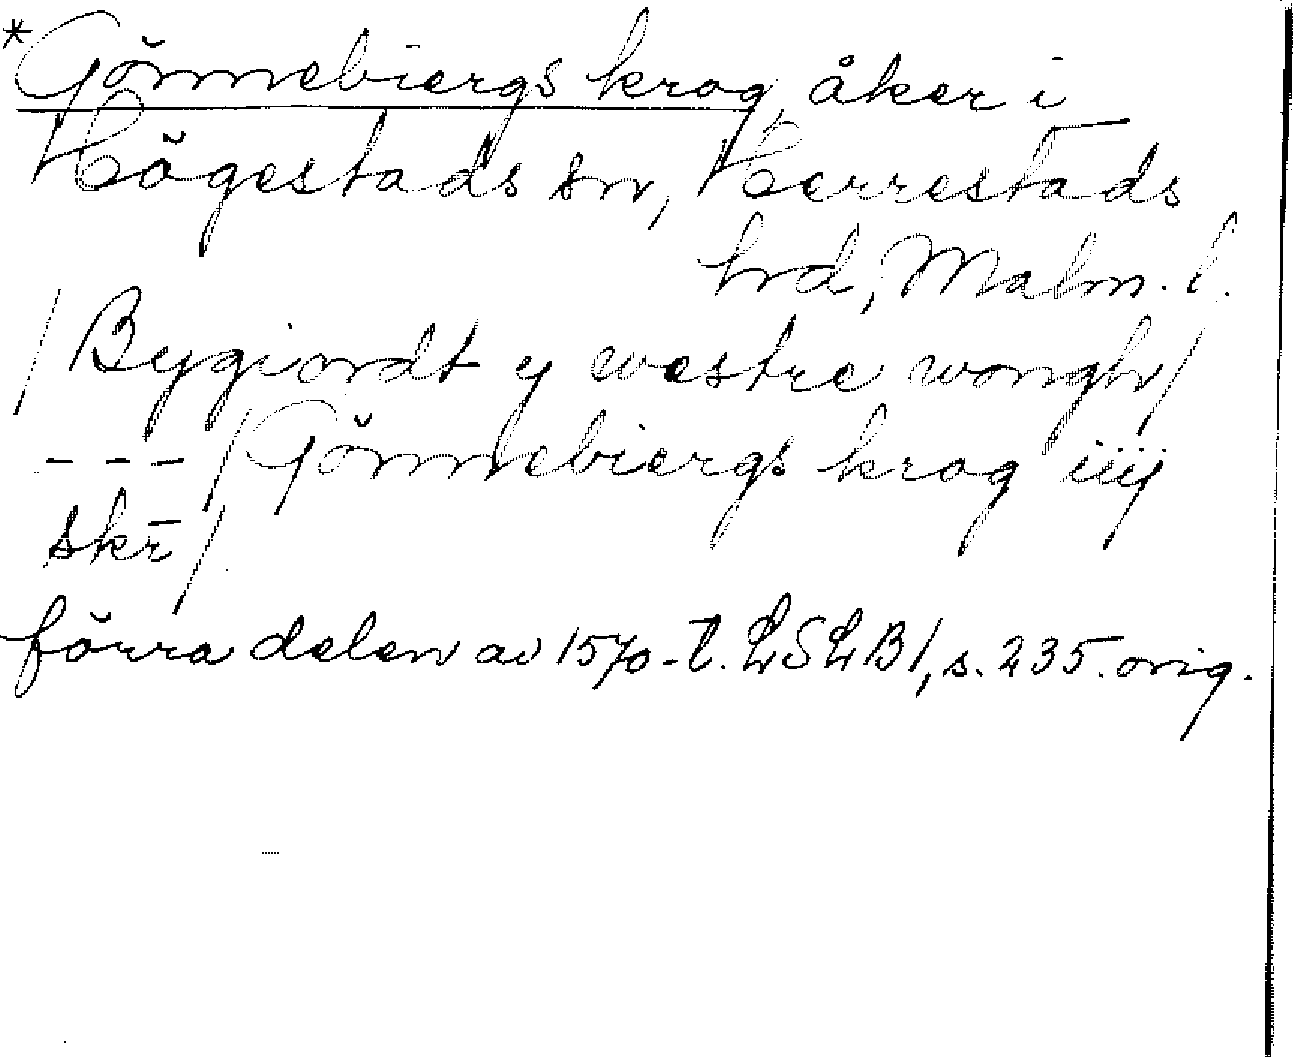 *Gönnebiergs krog, åker i
Högestads sn, Herrestads
hrd, Malm. l.
/Bygiordt y westre wongh/
---/Gönnebiergs krog iiij
skr̄/.
förra delen av 1570-t. LSLB1, s. 235. orig.